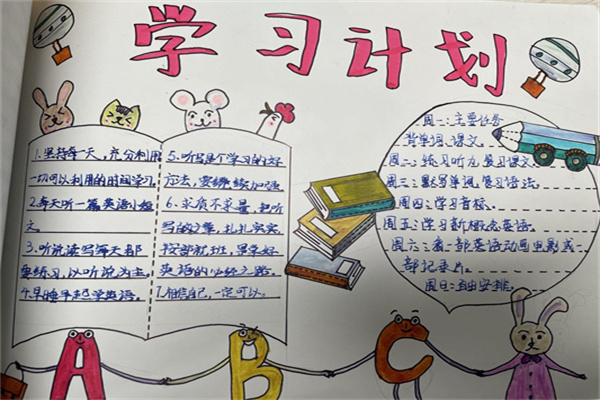 学习计划
1.坚持每一天，充分利用
一切可以利用的时间学习。
2.每天听一篇英语小短
文。
3.听说读写每天都
要练习，以听说为主。
4.早睡早起学英语。
5.听写是个学习的好
方法，要继续加强
6.求质不求量，把听
写的文章，扎扎实实
按部就班，是学好
英语的必经之路。
7.相信自己，一定可以。
周一:主要任务
背单词、课文。
周二:练习听力复习课文
周三:默写单词,复习语法。
周四:学习音标。
周五:学习新概念英语。
周六:看一部英语动画电影或一
部纪录片。
周日:自由安排。
A B C